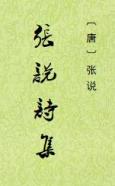 〔唐〕张说
張説詩集